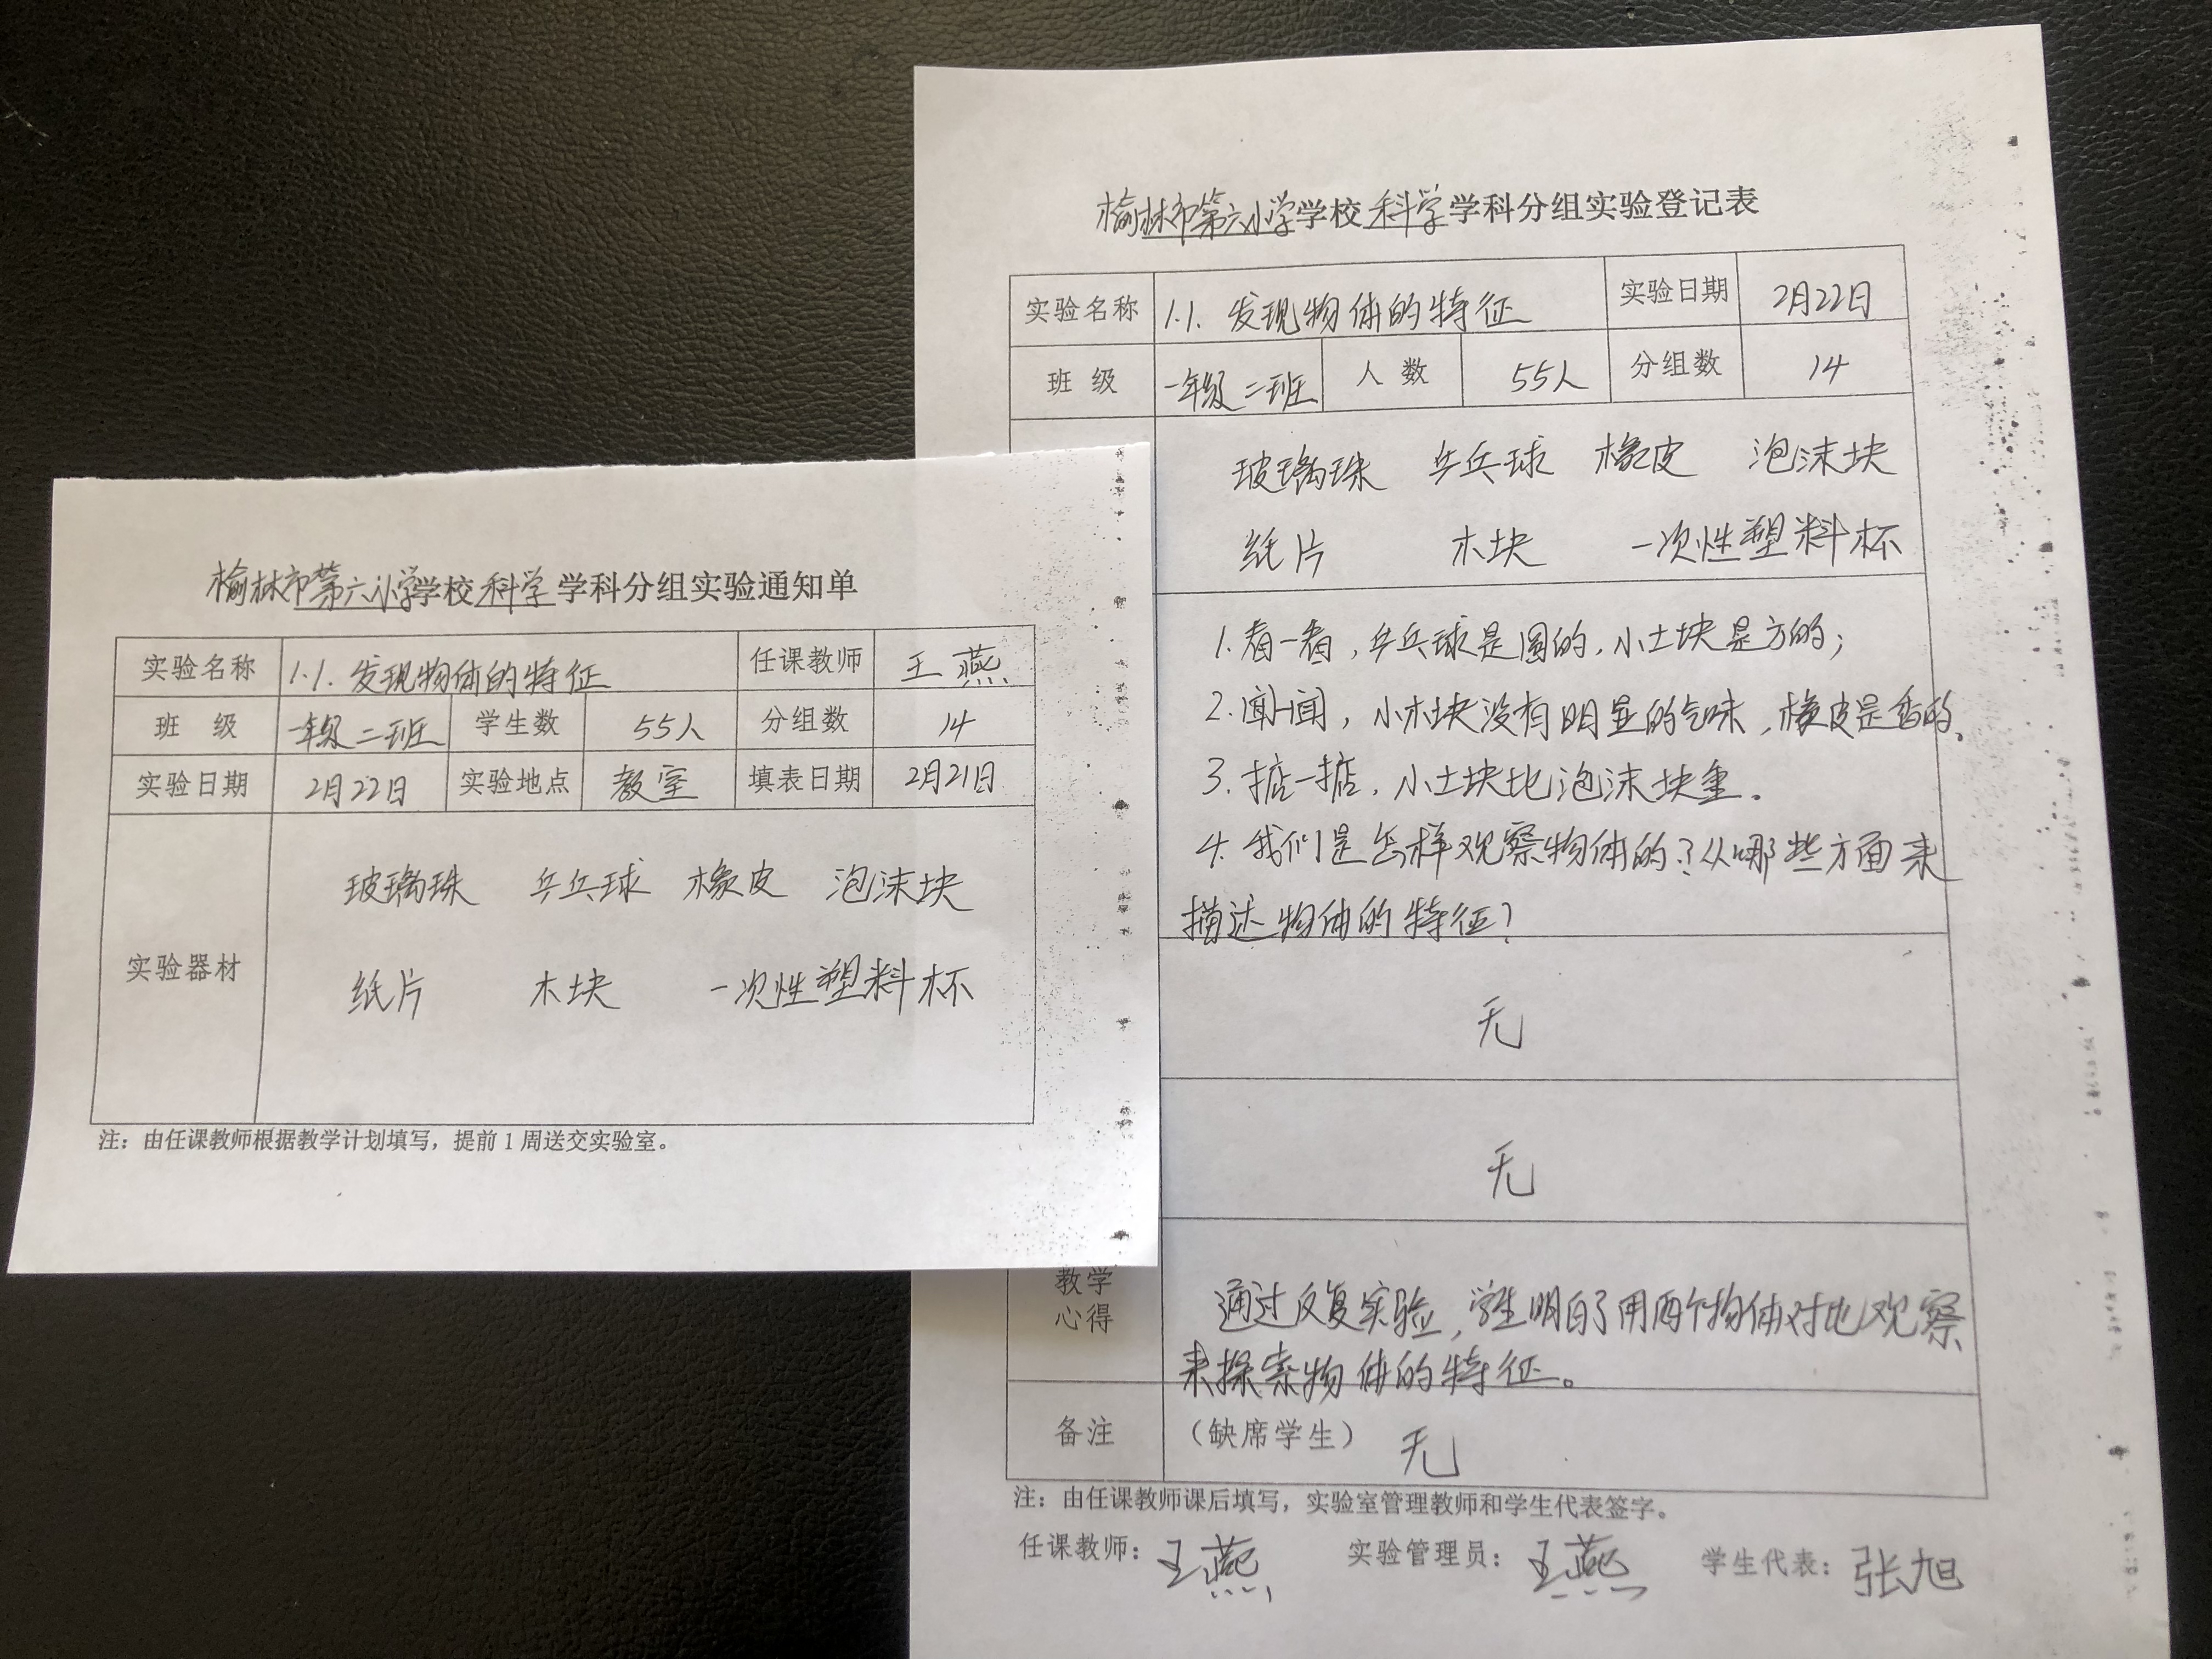 榆林市第六小学学校科学学科分组实验通知单
实验名称 1.1.发现物体的特征 任课教师 王燕
班 级 一年级二班 学生数 55人 分组数 14
实验日期 2月22日 实验地点 教室 填表日期 2月21日
实验器材
玻璃珠 乒乓球 橡皮 泡沫块
纸片 木块 一次性塑料杯
注：由任课教师根据教学计划填写，提前1周送交实验室。
榆林市第六小学学校科学学科分组实验登记表
实验名称 1.1.发现物体的特征 实验日期 2月22日
班 级 一年级二班 人 数 55人 分组数 14
玻璃珠 乒乓球 橡皮 泡沫块
纸片 木块 一次性塑料杯
1.看一看，乒乓球是圆的，小土块是方的；
2.闻一闻，小木块没有明显的气味，橡皮是香的。
3.掂一掂，小土块比泡沫块重。
4.我们是怎样观察物体的？从哪些方面来
描述物体的特征？
无
无
教学
心得
通过反复实验，学生明白了用两个物体对比观察
来探索物体的特征。
备注 （缺席学生） 无
注：由任课教师课后填写，实验室管理教师和学生代表签字。
任课教师：王燕 实验管理员：王燕 学生代表：张旭